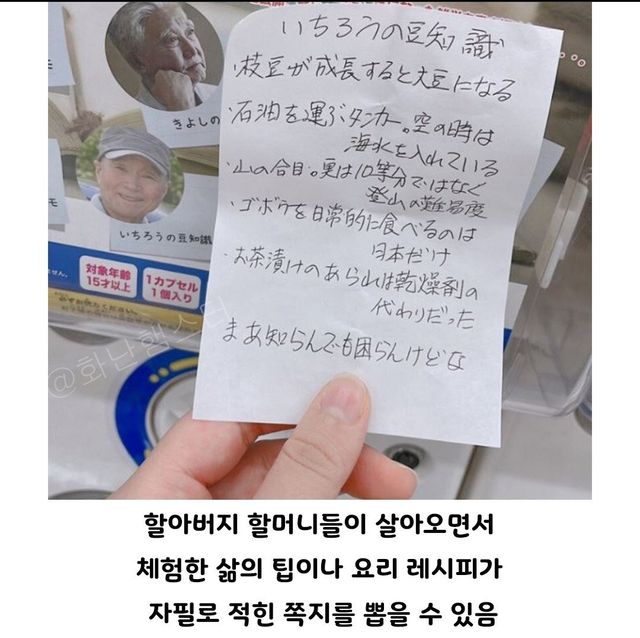 きよしの
モ
いちろうの豆知識
対象年齢
15才以上
1カプセル
1個入り
いちろうの豆知識
・枝豆が成長すると大豆になる
・石油を運ぶタンカー。空の時は
海水を入れている
・山の合目。実は10等分ではなく
登山の難易度
・ゴボウを日常的に食べるのは
日本だけ
・お茶漬けのあられは乾燥剤の
代わりだった
まあ知らんでも困らんけどな
@화난햄스터
할아버지 할머니들이 살아오면서
체험한 삶의 팁이나 요리 레시피가
자필로 적힌 쪽지를 뽑을 수 있음